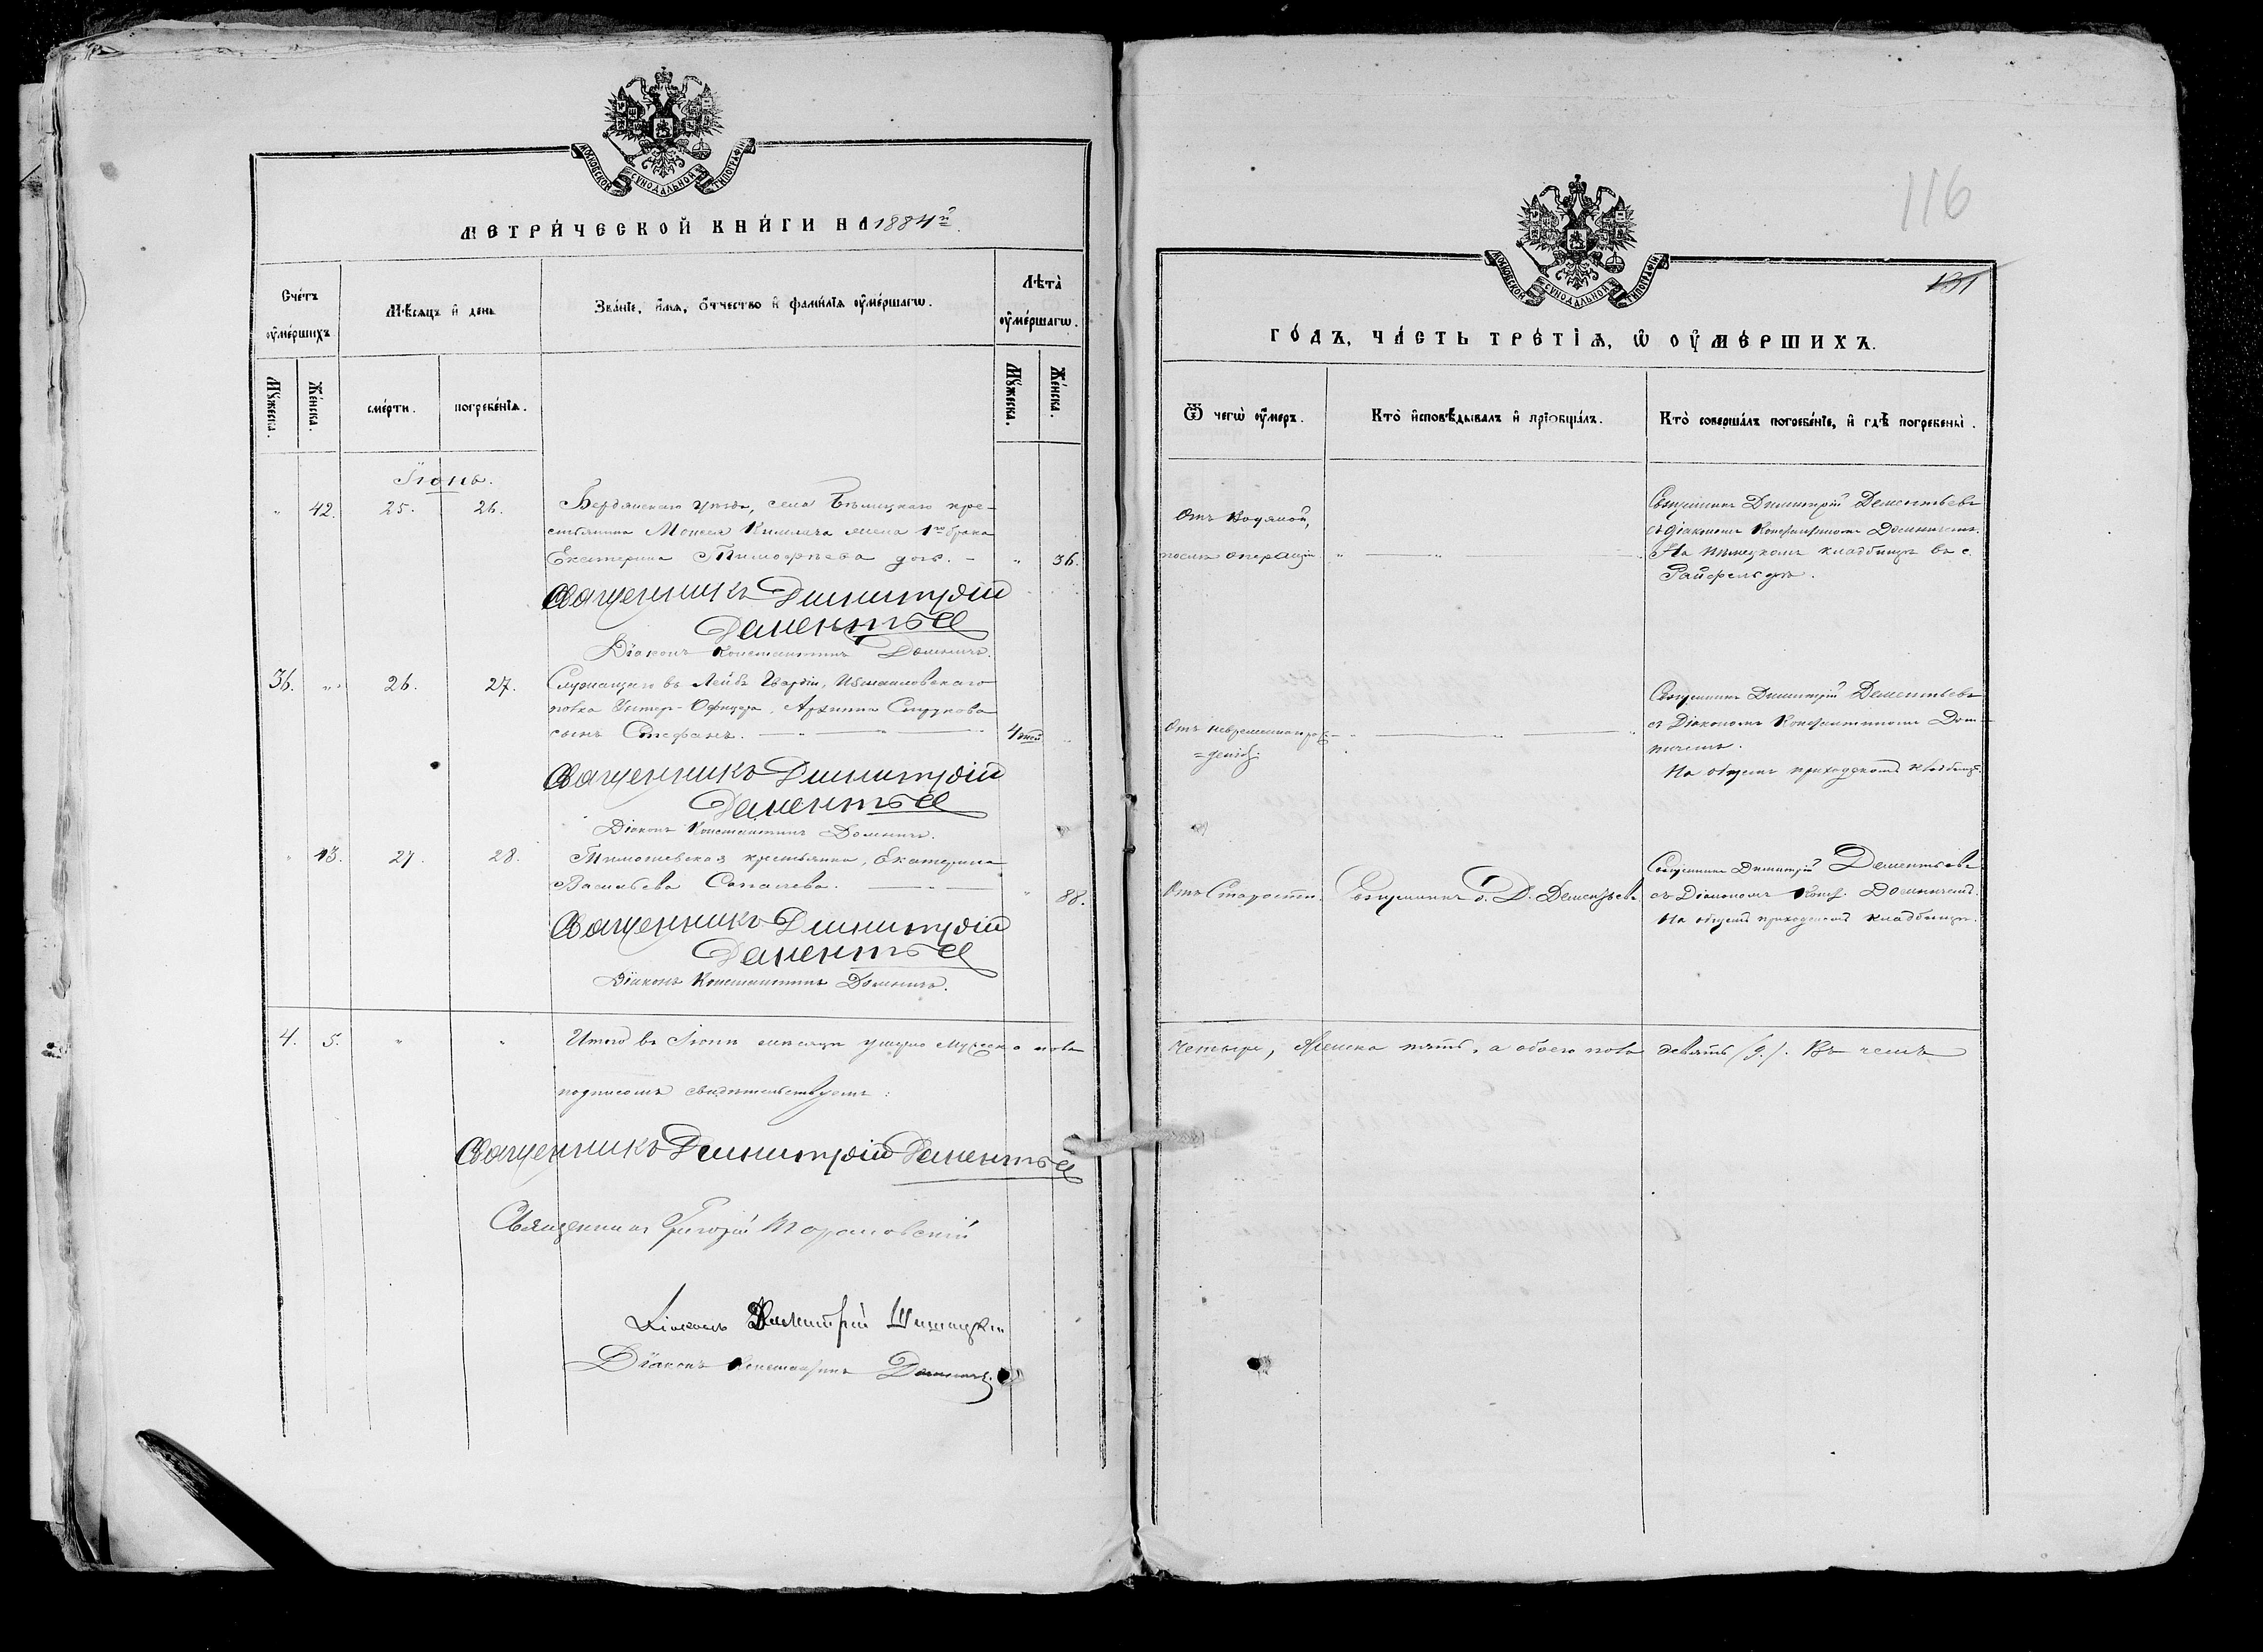 МОСКОВСКОЙ СѴНОДАЛЬНОЙ ТИПОГРАФІИ
МЕТРИ́ЧЕСКОЙ КНИ́ГИ НА 1884й
Сче́тъ ᲂу҆ме́ршихъ
Мѣ́сяцъ и҆ день
Зва́нїе, и҆́мя, о҆́тчество и҆ фами́лїя ᲂу҆ме́ршагѡ.
Лѣта̀ ᲂу҆ме́ршагѡ.
Мꙋ́жеска.
Же́нска.
сме́рти.
погребе́нїя.
Мꙋ́жеска.
Же́нска.
Іюнь.
" 42. 25. 26. Бердянскаго уѣзда, села кре-
стьянина Моисея жена 1го брака
Екатерина Тимофѣева доч. - " 36.
Священникъ Димитрій
Дементьев
Діаконъ Константинъ Домничъ.
36. " 26. 27. Служащаго въ Лейбъ Гвардіи, Измаиловскаго
полка Унтер-Офицера, Архипа
сынъ Стефанъ. 4 дней
Священникъ Димитрій
Дементьев
Діаконъ Константинъ Домничъ.
" 43. 27. 28. Тимошевская крестьянка, Екатерина
Васильева " 88.
Священникъ Димитрій
Дементьев
Діаконъ Константинъ Домничъ.
4. 5. " " Итого въ Іюнѣ мѣсяцѣ умерло мужеска пола
подписомъ свидѣтельствуемъ:
Священникъ Димитрій Дементьев
Священникъ Григорій Тарановскій
Діаконъ Димитрій
Діаконъ Константинъ Домничъ.
116
131
МОСКОВСКОЙ СѴНОДАЛЬНОЙ ТИПОГРАФІИ
ГО́ДЪ, ЧА́СТЬ ТРЕ́ТІѦ, Ѡ҆ ОУ҆МЕ́РШИХЪ.
Ѿ чегѡ̀ ᲂу҆́меръ.
Кто̀ и҆сповѣ́дывалъ и҆ прїѻбща́лъ.
Кто̀ соверша́лъ погребе́нїе, и҆ гдѣ̀ погребены̀.
Отъ Водяной,
послѣ операціи "
Священникъ Димитрій Дементьевъ
съ діакономъ Константиномъ Домничемъ.
На Нѣмецкомъ кладбищѣ въ с.
Райфельдъ.
Отъ невременнаго ро-
=денія.
Священникъ Димитрій Дементьевъ
съ Діакономъ Константиномъ Дом-
ничемъ.
На общемъ приходскомъ кладбищѣ.
Отъ Старости. Священникъ Д. Дементьевъ
Священникъ Димитрій Дементьевъ
съ Діакономъ Конст. Домничемъ.
На общемъ приходскомъ кладбищѣ.
Четыре, Женска пять, а обоего пола девять (9.). Въ чемъ